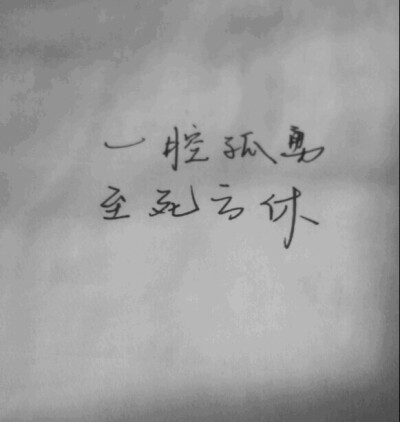 一腔孤勇
至死方休